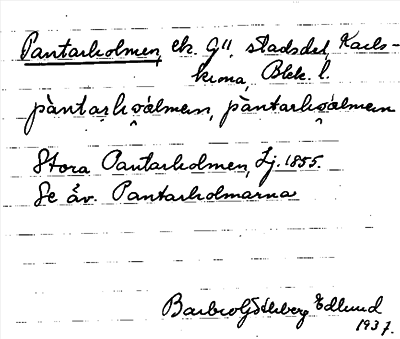 Pantarholmen, ek. G", stadsdel, Karls-
krona, Blek. l.
pàntarhoálmen, pàntarhoálmen
Stora Pantarholmen, Lj. 1855.
Se äv. Pantarholmarna
Barbro Edlund
1937.